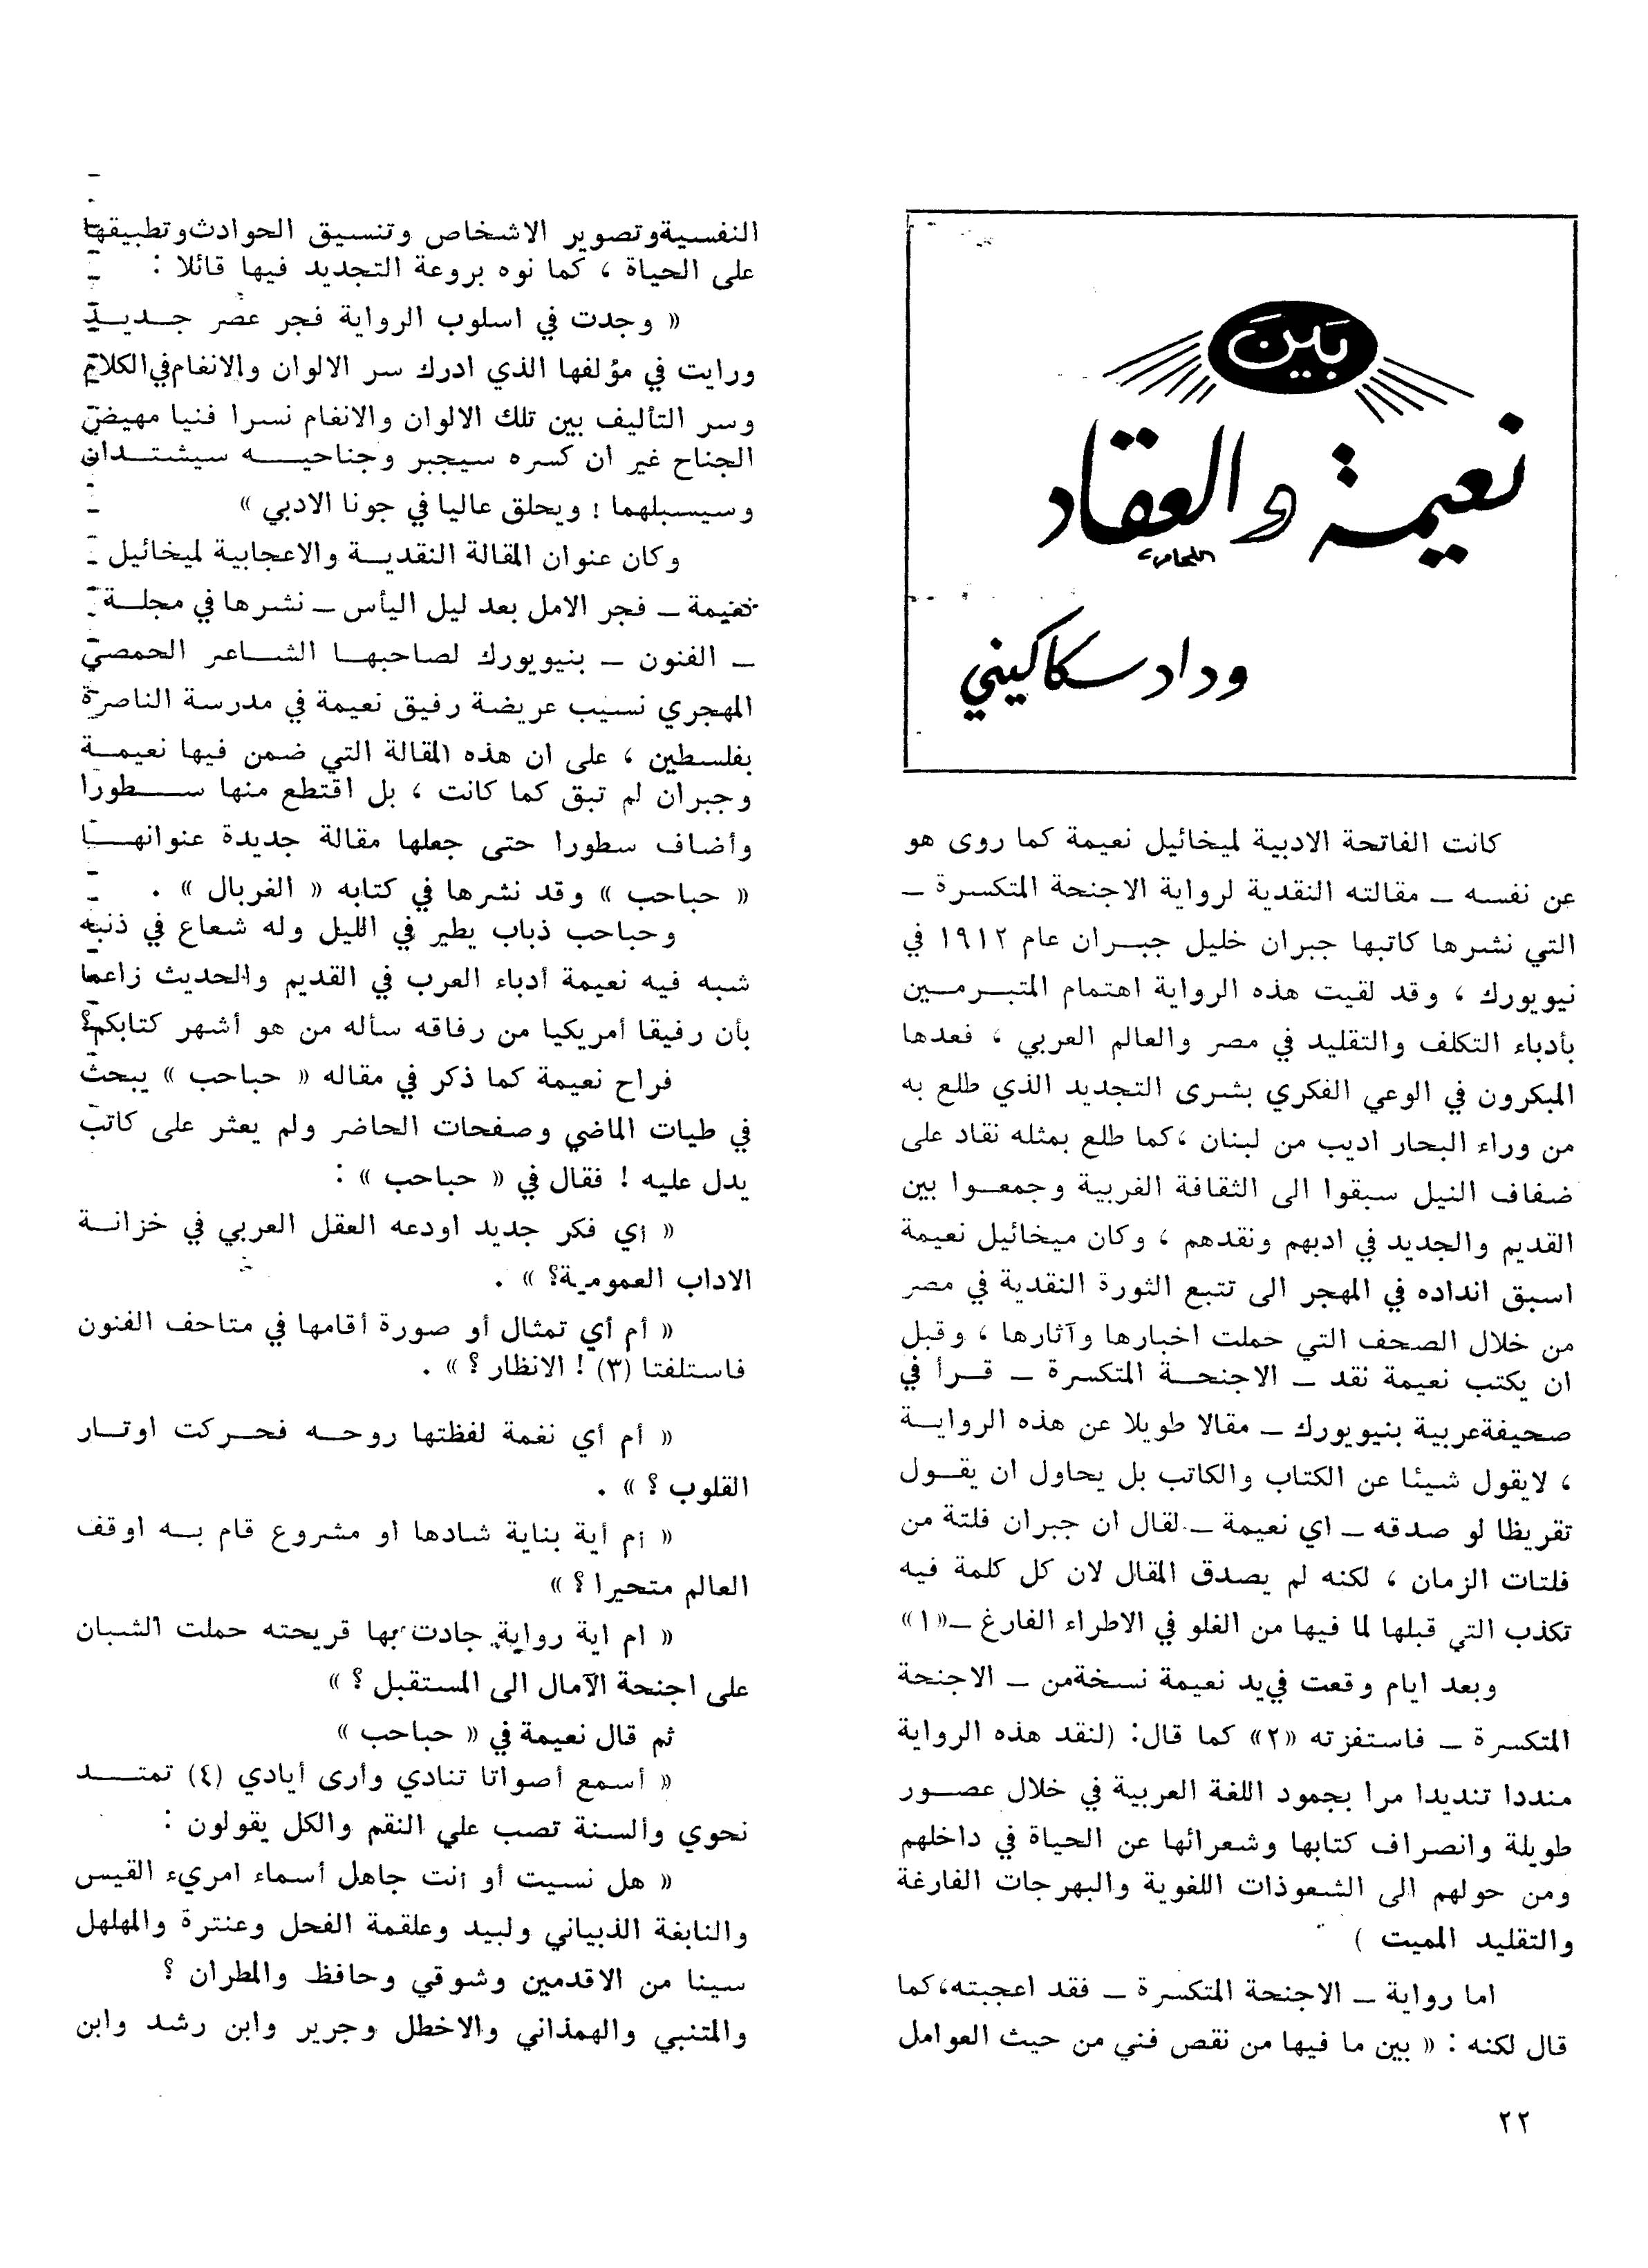 بَين
نعيمة والعقاد
وداد سكاكيني
كانت الفاتحة الادبية لميخائيل نعيمة كما روى هو
عن نفسه ــ مقالته النقدية لرواية الاجنحة المتكسرة ــ
التي نشرها كاتبها جبران خليل جبـــران عام ١٩١٢ في
نيويورك ، وقد لقيت هذه الرواية اهتمام المتبـــرمـــين
بأدباء التكلف والتقليد في مصر والعالم العربي ، فعدها
المبكرون في الوعي الفكري بشرى التجديد الذي طلع به
من وراء البحار اديب من لبنان ،كما طلع بمثله نقاد على
ضفاف النيل سبقوا الى الثقافة الغربية وجمعـــوا بين
القديم والجديد في ادبهم ونقدهم ، وكان ميخائيل نعيمة
اسبق انداده في المهجر الى تتبع الثورة النقدية في مصر
من خلال الصحف التي حملت اخبارها وآثارها ، وقبل
ان يكتب نعيمة نقد ــ الاجنحـــة المتكسرة ــ قـــرأ في
صحيفةعربية بنيويورك ــ مقالا طويلا عن هذه الروايـــة
، لايقول شيئا عن الكتاب والكاتب بل يحاول ان يقـــول
تقريظا لو صدقه ــ اي نعيمة ــ لقال ان جبران فلتة من
فلتات الزمان ، لكنه لم يصدق المقال لان كل كلمة فيه
تكذب التي قبلها لما فيها من الغلو في الاطراء الفارغ ــ«١»
وبعد ايام وقعت في‌يد نعيمة نسخةمن ــ الاجنحة
المتكسرة ــ فاستفزته «٢» كما قال: (لنقد هذه الرواية
منددا تنديدا مرا بجمود اللغة العربية في خلال عصـــور
طويلة وانصراف كتابها وشعرائها عن الحياة في داخلهم
ومن حولهم الى الشعوذات اللغوية والبهرجات الفارغة
والتقليد المميت )
اما رواية ــ الاجنحة المتكسرة ــ فقد اعجبته،كما
قال لكنه : « بين ما فيها من نقص فني من حيث العوامل
٢٢
النفسيةوتصوير الاشخاص وتنسيق الحوادث‌وتطبيقها
على الحياة ، كما نوه بروعة التجديد فيها قائلا :
« وجدت في اسلوب الرواية فجر عصر جـــديـــد
ورايت في مؤلفها الذي ادرك سر الالوان والانغام‌في‌الكلام
وسر التأليف بين تلك الالوان والانغام نسرا فنيا مهيض
الجناح غير ان كسره سيجبر وجناحيـــه سيشتـــدان
وسيسبلهما ! ويحلق عاليا في جونا الادبي »
وكان عنوان المقالة النقديـــة والاعجابية لميخائيل
نعيمة ــ فجر الامل بعد ليل اليأس ــ نشرها في مجلـــة
ــ الفنون ــ بنيويورك لصاحبهـــا الشـــاعر الحمصي
المهجري نسيب عريضة رفيق نعيمة في مدرسة الناصرة
بفلسطين ، على ان هذه المقالة التي ضمن فيها نعيمـــة
وجبران لم تبق كما كانت ، بل اقتطع منها ســـطورا
وأضاف سطورا حتى جعلها مقالة جديدة عنوانهـــا
« حباحب » وقد نشرها في كتابه « الغربال » .
وحباحب ذباب يطير في الليل وله شعاع في ذنبه
شبه فيه نعيمة أدباء العرب في القديم والحديث زاعما
بأن رفيقا أمريكيا من رفاقه سأله من هو أشهر كتابكم؟
فراح نعيمة كما ذكر في مقاله « حباحب » يبحث
في طيات الماضي وصفحات الحاضر ولم يعثر على كاتب
يدل عليه ! فقال في « حباحب » :
« أي فكر جديد اودعه العقل العربي في خزانـــة
الاداب العمومية؟ » .
« أم أي تمثال أو صورة أقامها في متاحف الفنون
فاستلفتا (٣) ! الانظار ؟ » .
« أم أي نغمة لفظتها روحـــه فحـــركت اوتـــار
القلوب ؟ » .
« أم أية بناية شادها او مشروع قام بـــه اوقف
العالم متحيرا ؟ »
« ام اية رواية جادت بها قريحته حملت الشبان
على اجنحة الآمال الى المستقبل ؟ »
ثم قال نعيمة في « حباحب »
« أسمع أصواتا تنادي وأرى أيادي (٤) تمتـــد
نحوي وألسنة تصب علي النقم والكل يقولون :
« هل نسيت أو أنت جاهل أسماء امريء القيس
والنابغة الذبياني ولبيد وعلقمة الفحل وعنترة والمهلهل
سينا من الاقدمين وشوقي وحافظ والمطران ؟
والمتنبي والهمذاني والاخطل وجرير وابن رشد وابن